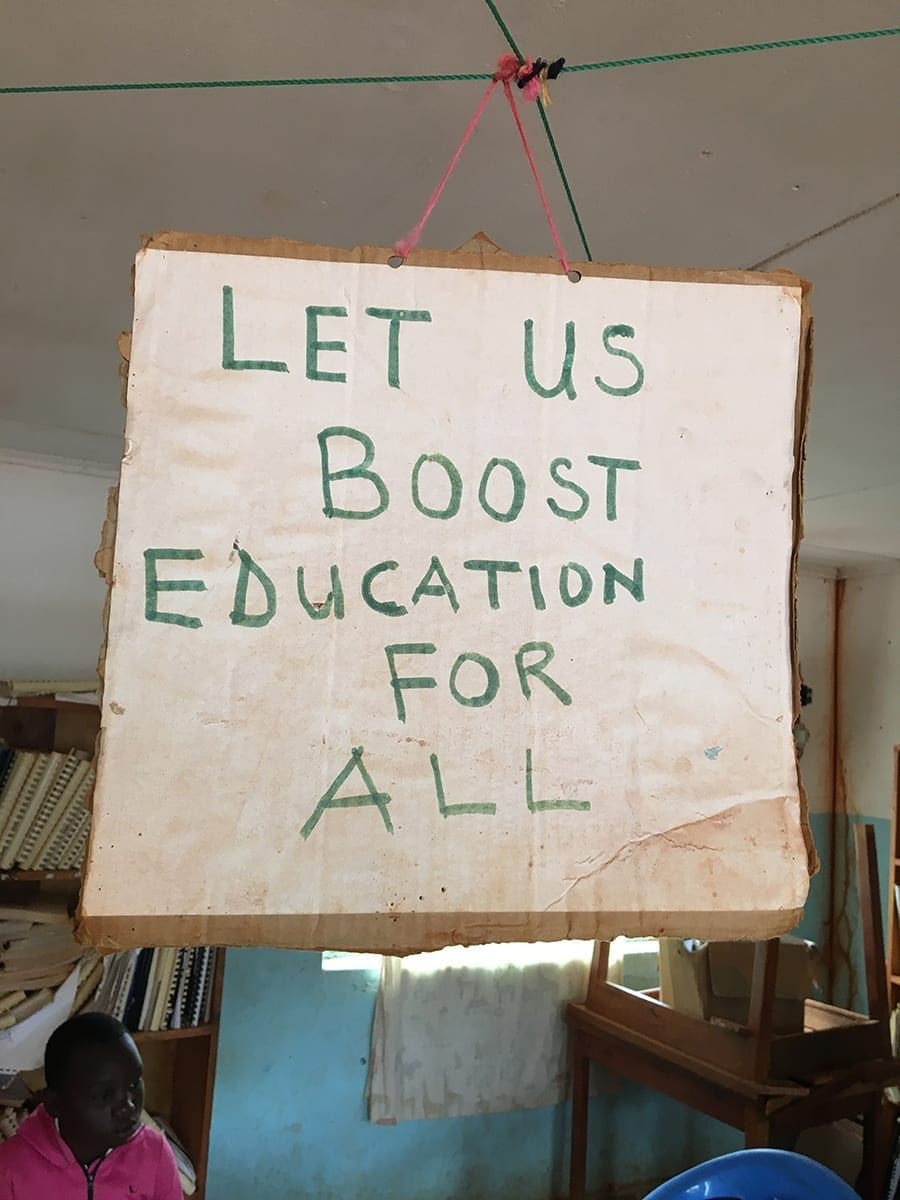 LET US
BOOST
EDUCATION
FOR
ALL